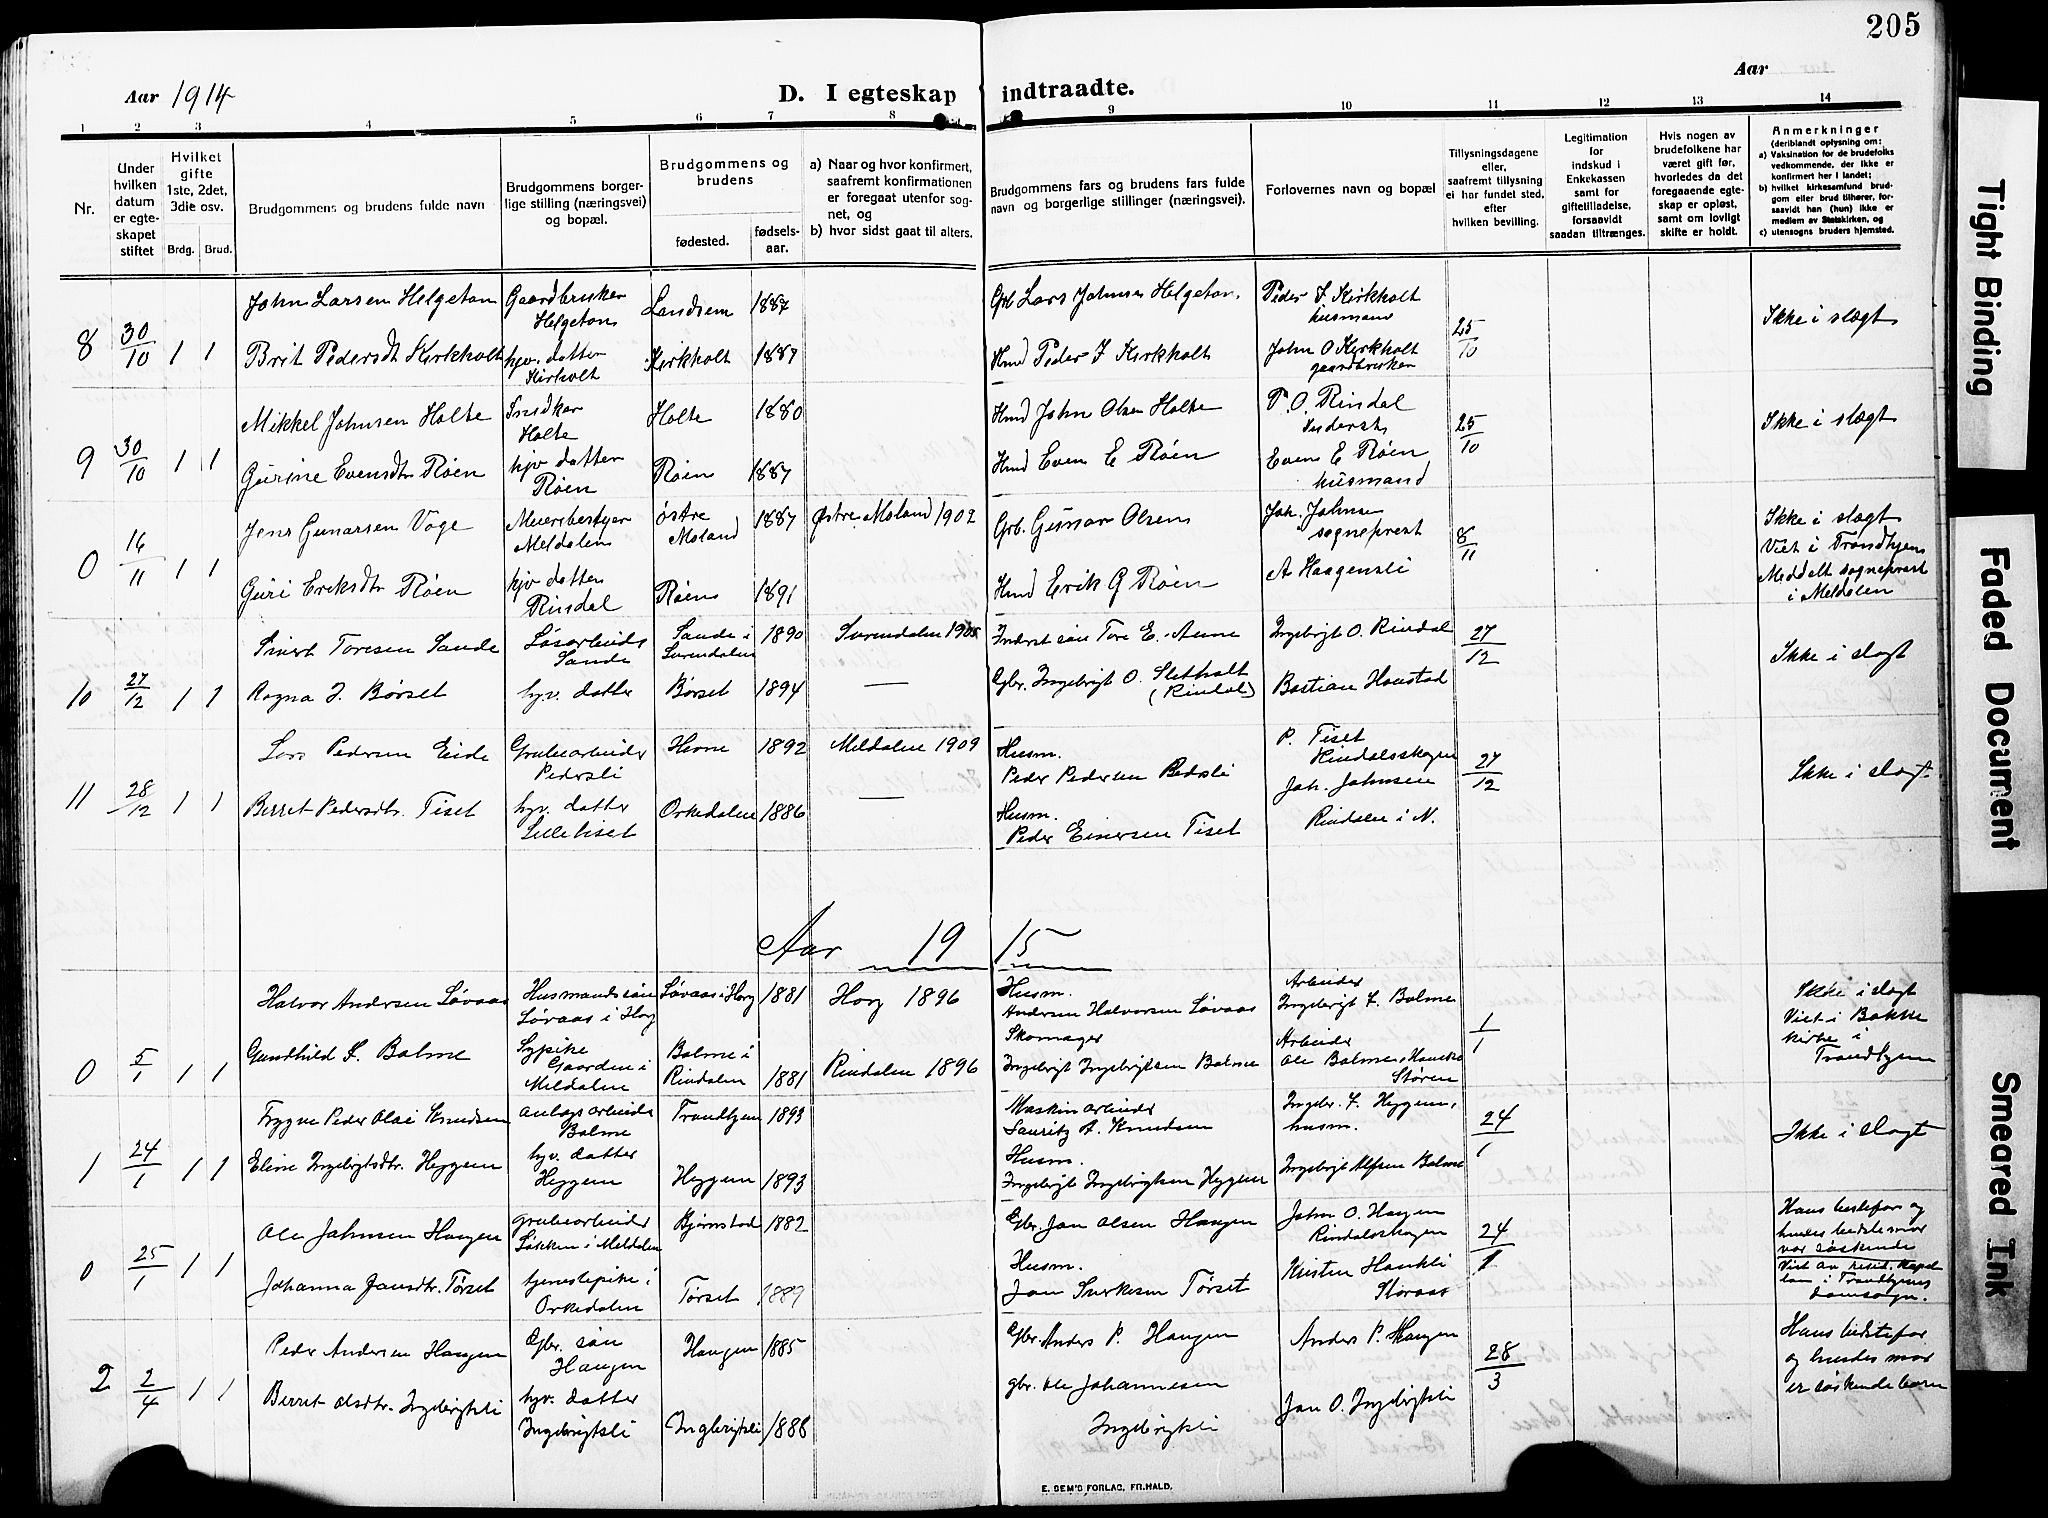 205
Aar 1914
D. I egteskap indtraadte.
Aar
1 2 3 4 5 6 7 8 9 10 11 12 13 14
Nr.
Under hvilken datum er egteskapet stiftet
Hvilket gifte 1ste, 2det, 3die osv.
Brdg. Brud.
Brudgommens og brudens fulde navn
Brudgommens borgerlige stilling (næringsvei) og bopæl.
Brudgommens og brudens
fødested.
fødselsaar.
a) Naar og hvor konfirmert, saafremt konfirmationen er foregaat utenfor sognet, og
b) hvor sidst gaat til alters.
Brudgommens fars og brudens fars fulde navn og borgerlige stillinger (næringsvei).
Forlovernes navn og bopæl
Tillysningsdagene eller, saafremt tillysning ei har fundet sted, efter hvilken bevilling.
Legitimation for indskud i Enkekassen samt for giftetilladelse, forsaavidt saadan tiltrænges.
Hvis nogen av brudefolkene har været gift før, hvorledes da det foregaaende egteskap er opløst, samt om lovligt skifte er holdt.
Anmerkninger
(deriblandt oplysning om:
a) Vaksination for de brudefolks vedkommende, der ikke er konfirmert her i landet;
b) hvilket kirkesamfund brudgom eller brud tilhører, forsaavidt han (hun) ikke er medlem av Statskirken, og
c) utensogns bruders hjemsted.
8 30/10 1 1
John Larsen Helgeton Gaardbruker Helgetons Landsem 1887 Grb Lars Johnsen Helgeton. Peder J Kirkholt husmand 25/10 Ikke i slægt
Brit Pedersdt Kirkholt hjv. datter Kirholt Kirkholt 1887 Hmd Peder J Kirkholt John O Kirkholt gaardbruker
9 30/10 1 1
Mikkel Johnsen Holte Snidker Holte Holte 1880 Hmd John Olsen Holte P. O. Rindal Inderst 25/10 Ikke i slægt
Gurine Evensdtr Røen hjv datter Røen Røen 1887 Hmd Even E Røen Even E Røen husmand
0 16/11 1 1
Jens Gunarsen Vage Meieribestyer Meldalen Østre Moland 1887 Østre Moland 1902 Grb. Gunar Olsen Joh. Johnsen sogneprest 8/11 Ikke i slægt
Viet i Trondhjem
Meddelt sogneprest
i Meldalen
Guri Eriksdtr Røen hjv datter Rindal Røen 1891 Hmd Erik G Røen A Haagensli
10 27/12 1 1
Sivert Toresen Sande Løsarbeids Sande Sande i Surendalen 1890 Surendalen 1905 Inderst søn Tore E. Aune Ingebrigt O. Rindal 27/12 Ikke i slægt
Ragna I. Børset hjv. datter Børset 1894 — Gbr. Ingebrigt O. Sletholt (Rindal) Bastian Haustad
11 28/12 1 1
Lars Pedersen Eide Grubearbeider Pedersli Hevne 1892 Meldalen 1909 Husm. Peder Pedersen Pedersli P. Tiset Rindalsskogen 27/12 Ikke i slægt.
Berret Pedersdtr. Tiset hjv. datter Lilletiset Orkedalen 1886 — Husm. Peder Einersen Tiset Joh. Johnsen Rindalen i N.
Aar 1915
0 5/1 1 1
Halvor Andersen Løvaas Husmandssøn Løvaas i Horg Løvaas i Horg 1881 Horg 1896 Husm. Andersen Halvorsen Løvaas Arbeider Ingebrigt I. Bolme 1/1 Ikke i slægt
Viet i Bakke
kirke i
Trondhjem
Gundhild I. Bolme Sypike Gaarden i Meldalen Bolme i Rindalen 1881 Rindalen 1896 Skomager Ingebrigt Ingebrigtsen Bolme Arbeider Ole Bolme, Støren
1 24/1 1 1
Trygve Peder Olai Knudsen anlægsarbeider Bolme Trondhjem 1893 Maskinarbeider Lauritz A. Knudsen Ingebr. I. Heggem, husm. 24/1 Ikke i slægt
Eline Ingebrigtsdtr. Heggem hjv. datter Heggem Heggem 1893 Husm. Ingebrigt Ingebrigtsen Heggem Ingebrigt Alfsen Bolme
0 25/1 1 1
Ole Johnsen Haugen grubearbeider Løkken i Meldalen Bjørnstad 1882 Gbr. Jon Olsen Haugen John O. Haugen Rindalsskogen 24/1 Hans bestefar og
hendes bedstemor
var søskende
Viet av resid. kapel
lan i Trondhjems
domsogn.
Johanna Jonsdtr. Tørset tjenestepike i Orkedalen Tørset 1889 Husm. Jon Sivertsen Tørset Kristen Haukli Storaas
2 2/4 1 1
Peder Andersen Haugen Gbr. søn Haugen Haugen 1885 Gbr. Anders P. Haugen Anders P. Haugen 28/3 Hans bedstefar
og hendes mor
er søskendebarn
Berret Olsdtr. Ingebrigtsli hjv. datter Ingebrigtsli Ingebrigtsli 1888 gbr. Ole Johannesen Ingebrigtsli Jon O. Ingebrigtsli
E. SEM'S FORLAG, FR.HALD.
Tight Binding
Faded Document
Smeared Ink